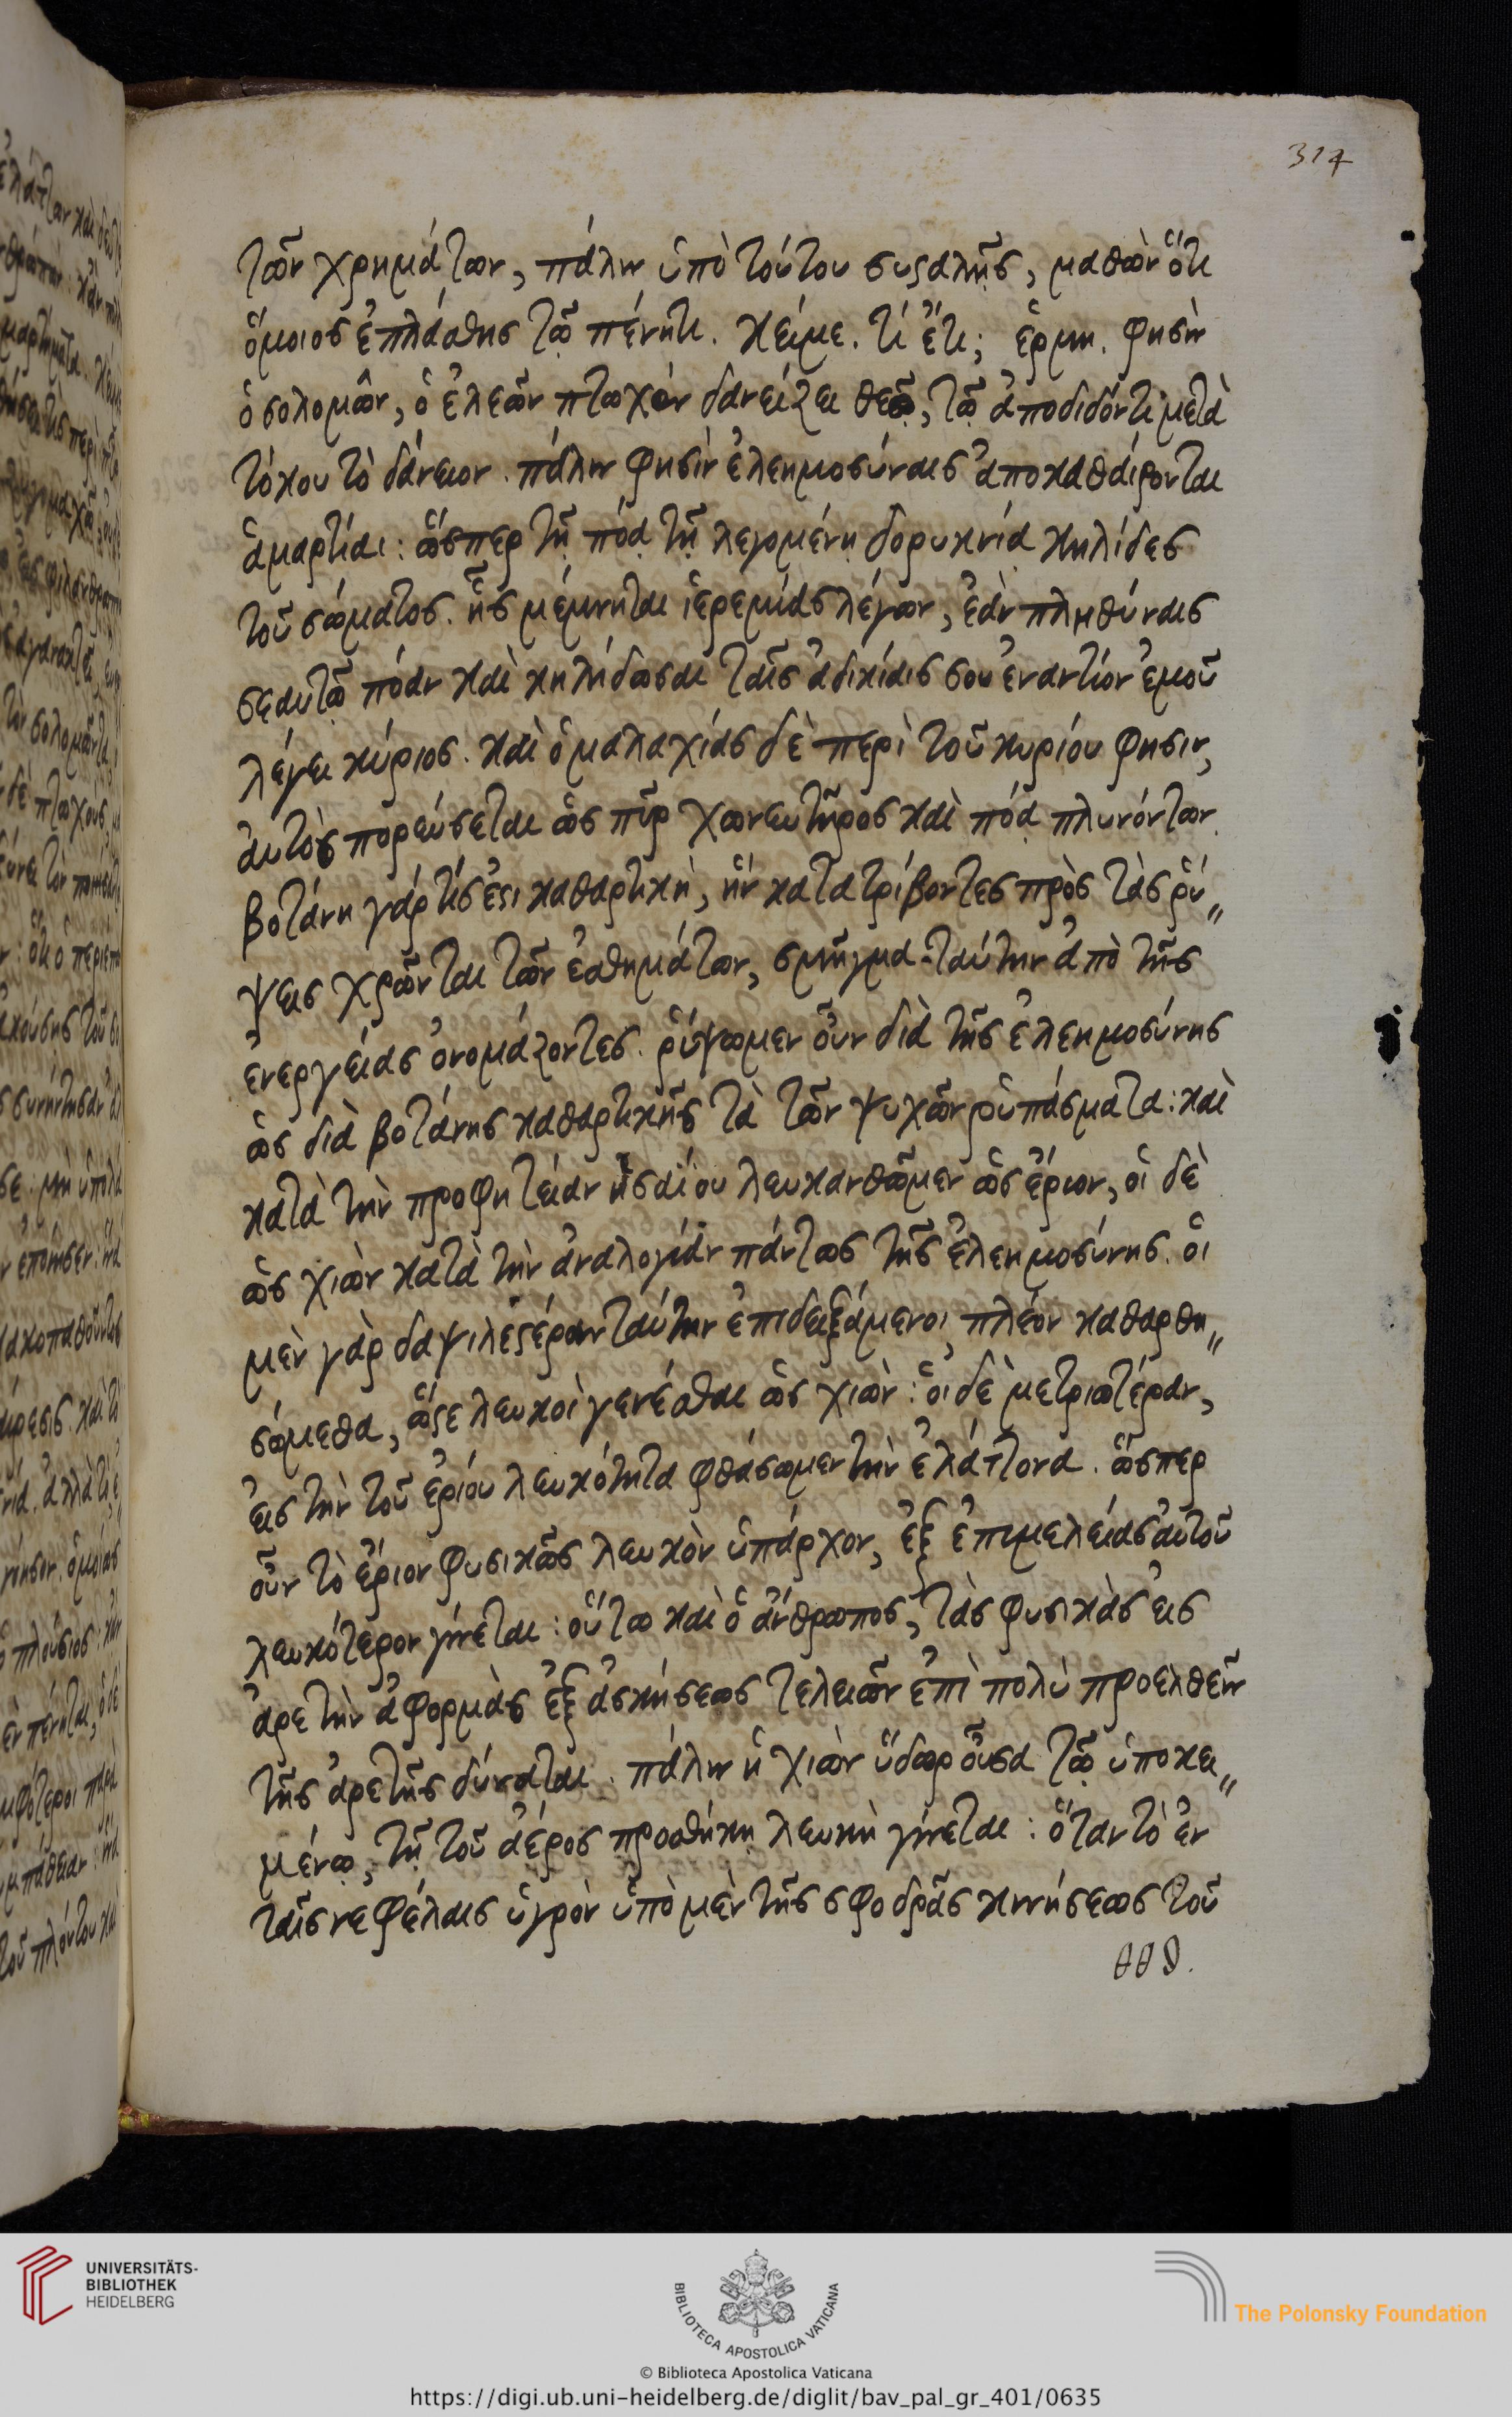 314
τῶν χρημάτων, πάλιν ὑπὸ τούτου συςαλῇς, μαθὼν ὅτι
ὅμοιος ἐπλάσθης τῷ πένητι. κείμε. τί ἔτι; ἑρμη. φησὶν
ὁ σολομῶν, ὁ ἐλεῶν πτωχὸν δανείζει θεῷ, τῷ ἀποδιδόντι μετὰ
τόκου τὸ δάνειον. πάλιν φησὶν ἐλεημοσύναις ἀποκαθαίρονται
ἁμαρτίαι: ὥσπερ τῇ πόᾳ τῇ λεγομένῃ δορυκνίᾳ κηλίδες
τοῦ σώματος. ἧς μέμνηται ἱερεμίας λέγων, ἐὰν πληθύναις
σεαυτῷ πόαν καὶ κηλίδωσαι ταῖς ἀδικίαις σου ἐναντίον ἐμοῦ
λέγει κύριος. καὶ ὁ μαλαχίας δὲ περὶ τοῦ κυρίου φησιν,
αὐτὸς πορεύσεται ὡς πῦρ χωνευτῆρος καὶ πόᾳ πλυνόντων
βοτάνη γάρ τίς ἐςι καθαρτικὴ, ἣν κατατρίβοντες πρὸς τὰς ῥύ〃
ψεις χρῶνται τῶν ἐσθημάτων, σμῆγμα ταύτην ἀπὸ τῆς
ἐνεργείας ὀνομάζοντες. ῥύψωμεν οὖν διὰ τῆς ἐλεημοσύνης
ὡς διὰ βοτάνης καθαρτικῆς τὰ τῶν ψυχῶν ῥυπάσματα: καὶ
κατὰ τὴν προφητείαν ἡσαΐου λευκανθῶμεν ὡς ἔριον, οἱ δὲ
ὡς χιὼν κατὰ τὴν ἀναλογίαν πάντως τῆς ἐλεημοσύνης. οἱ
μὲν γὰρ δαψιλεςέραν ταύτην ἐπιδειξάμενοι, πλέον καθαρθη〃
σώμεθα, ὥςε λευκοὶ γενέσθαι ὡς χιὼν: οἱ δὲ μετριωτέραν,
εἰς τὴν τοῦ ἐρίου λευκότητα φθάσωμεν τὴν ἐλάττονα. ὥσπερ
οὖν τὸ ἔριον φυσικῶς λευκὸν ὑπάρχον, ἐξ ἐπιμελείας αὐτοῦ
λευκότερον γίνεται: οὕτω καὶ ὁ ἄνθρωπος, τὰς φυσικὰς εἰς
ἀρετὴν ἀφορμὰς ἐξ ἀσκήσεως τελειῶν ἐπὶ πολὺ προελθεῖν
τῆς ἀρετῆς δύναται. πάλιν ἡ χιὼν ὕδωρ οὖσα τῷ ὑποκει〃
μένῳ, τῇ τοῦ ἀέρος προσθήκῃ λευκὴ γίνεται: ὅταν τὸ ἐν
ταῖς νεφέλαις ὑγρὸν ὑπὸ μὲν τῆς σφοδρᾶς κινήσεως τοῦ
θθθ.
UNIVERSITÄTS-
BIBLIOTHEK
HEIDELBERG
BIBLIOTECA APOSTOLICA VATICANA
© Biblioteca Apostolica Vaticana
The Polonsky Foundation
https://digi.ub.uni-heidelberg.de/diglit/bav_pal_gr_401/0635